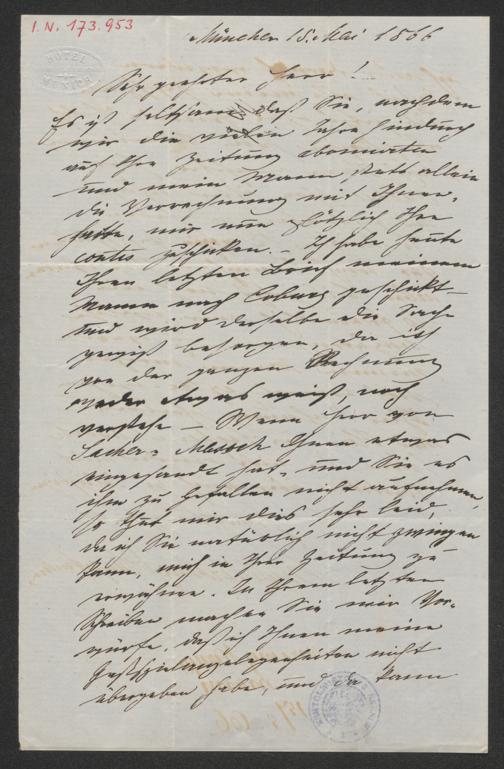 I.N. 173.953
HÔTEL
MUNICH
München 15. Mai 1866
Sehr geehrter Herr!
Es ist seltsam, daß Sie, nachdem
wir die vielen Jahre hindurch
auf Ihre Zeitung abonnirten
und mein Mann stets allein
die Verrechnung mit Ihnen
hatte, mir nun plötzlich Ihre
contis zuschicken. Ich habe heute
Ihren letzten Brief meinem
Mann nach Coburg geschickt
und wird derselbe die Sache
gewiß besorgen, da ich
von der ganzen Rechnung
weder etwas weiß, noch
verstehe – Wenn Herr von
Sacher-Masoch Ihnen etwas
eingesandt hat, und Sie es
ihm zu Gefallen nicht aufnehmen,
so thut mir dies sehr leid
da ich Sie natürlich nicht zwingen
kann, mich in Ihrer Zeitung zu
erwähnen. In Ihrem letzten
Schreiben machen Sie mir Vor-
würfe, daß ich Ihnen meine
Gastspielangelegenheiten nicht
übergeben habe, und da kann